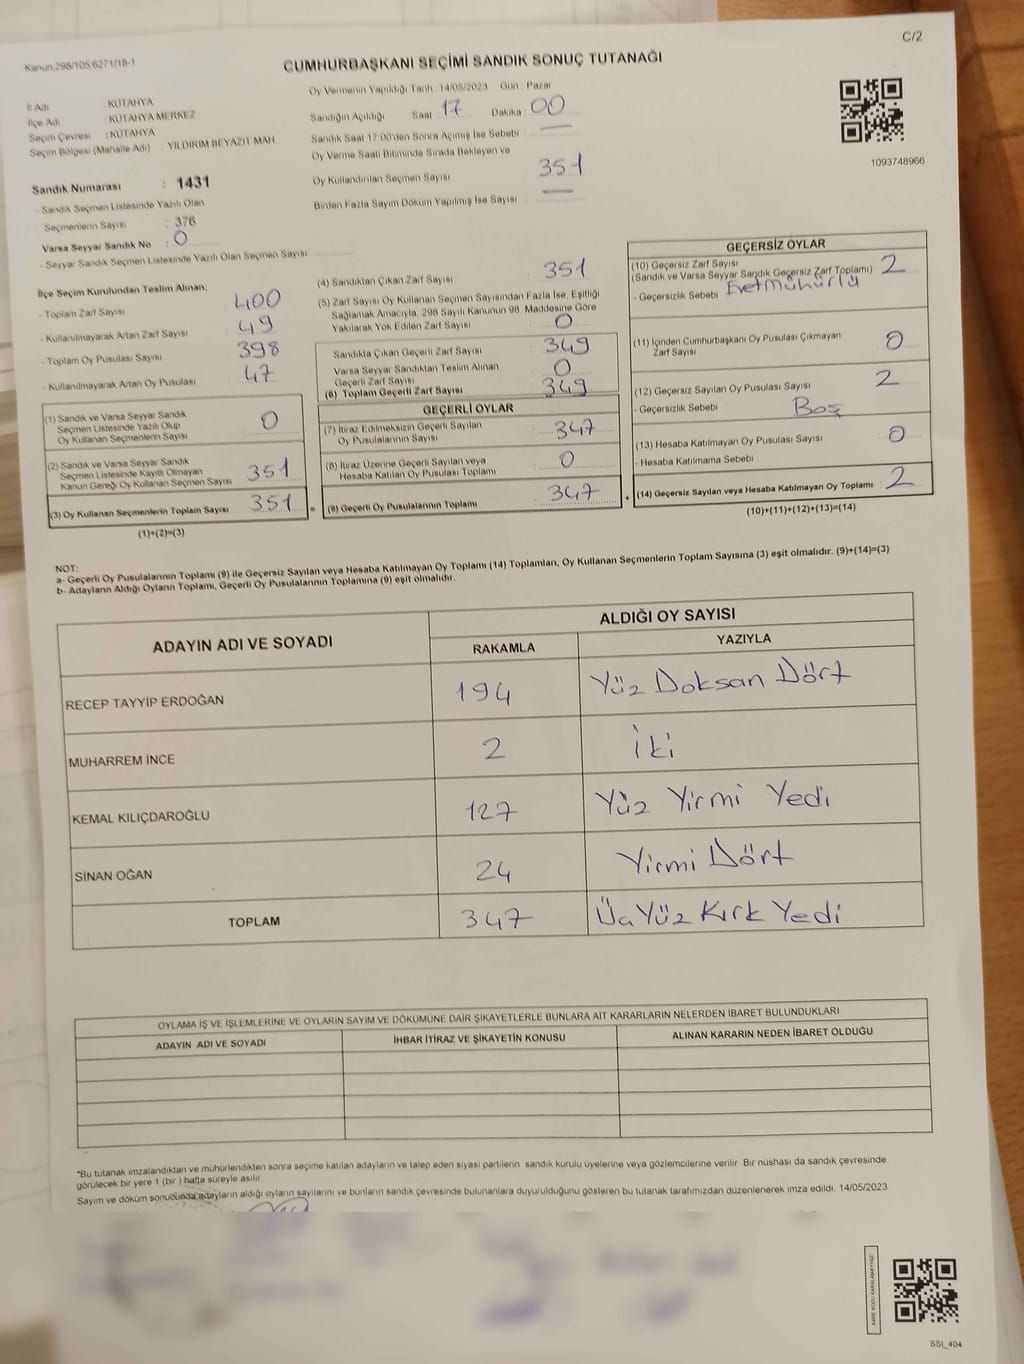 C/2
Kanun.298/105,6271/18-1
CUMHURBAŞKANI SEÇİMİ SANDIK SONUÇ TUTANAĞI
İl Adı : KÜTAHYA
İlçe Adı : KÜTAHYA MERKEZ
Seçim Çevresi : KÜTAHYA
Seçim Bölgesi (Mahalle Adı) : YILDIRIM BEYAZIT MAH
Sandık Numarası : 1431
- Sandık Seçmen Listesinde Yazılı Olan
Seçmenlerin Sayısı : 376
Varsa Seyyar Sandık No : 0
- Seyyar Sandık Seçmen Listesinde Yazılı Olan Seçmen Sayısı
Oy Vermenin Yapıldığı Tarih : 14/05/2023 Gün : Pazar
Sandığın Açıldığı Saat : 17 Dakika : 00
Sandık Saat 17:00'den Sonra Açımış İse Sebebi : —
Oy Verme Saati Bitiminde Sırada Bekleyen ve
Oy Kullandırılan Seçmen Sayısı : 351
Birden Fazla Sayım Döküm Yapılmış İse Sayısı : —
1093748966
İlçe Seçim Kurulundan Teslim Alınan;
- Toplam Zarf Sayısı : 400
- Kullanılmayarak Artan Zarf Sayısı : 49
- Toplam Oy Pusulası Sayısı : 398
- Kullanılmayarak Artan Oy Pusulası : 47
(1) Sandık ve Varsa Seyyar Sandık
Seçmen Listesinde Yazılı Olup
Oy Kullanan Seçmenlerin Sayısı : 0
(2) Sandık ve Varsa Seyyar Sandık
Seçmen Listesinde Kayıtlı Olmayan
Kanun Gereği Oy Kullanan Seçmen Sayısı : 351
(3) Oy Kullanan Seçmenlerin Toplam Sayısı : 351
(1)+(2)=(3)
(4) Sandıktan Çıkan Zarf Sayısı : 351
(5) Zarf Sayısı Oy Kullanan Seçmen Sayısından Fazla İse, Eşitliği
Sağlamak Amacıyla, 298 Sayılı Kanunun 98. Maddesine Göre
Yakılarak Yok Edilen Zarf Sayısı : 0
Sandıkta Çıkan Geçerli Zarf Sayısı : 349
Varsa Seyyar Sandıktan Teslim Alınan
Geçerli Zarf Sayısı : 0
(6) Toplam Geçerli Zarf Sayısı : 349
GEÇERLİ OYLAR
(7) İtiraz Edilmeksizin Geçerli Sayılan
Oy Pusulalarının Sayısı : 347
(8) İtiraz Üzerine Geçerli Sayılan veya
Hesaba Katılan Oy Pusulası Toplamı : 0
= (9) Geçerli Oy Pusulalarının Toplamı : 347
GEÇERSİZ OYLAR
(10) Geçersiz Zarf Sayısı
(Sandık ve Varsa Seyyar Sandık Geçersiz Zarf Toplamı) 2
- Geçersizlik Sebebi : Evet Mühürlü
(11) İçinden Cumhurbaşkanı Oy Pusulası Çıkmayan
Zarf Sayısı : 0
(12) Geçersiz Sayılan Oy Pusulası Sayısı : 2
- Geçersizlik Sebebi : Boş
(13) Hesaba Katılmayan Oy Pusulası Sayısı : 0
- Hesaba Katılmama Sebebi :
+ (14) Geçersiz Sayılan veya Hesaba Katılmayan Oy Toplamı : 2
(10)+(11)+(12)+(13)=(14)
NOT:
a- Geçerli Oy Pusulalarının Toplamı (9) ile Geçersiz Sayılan veya Hesaba Katılmayan Oy Toplamı (14) Toplamları, Oy Kullanan Seçmenlerin Toplam Sayısına (3) eşit olmalıdır. (9)+(14)=(3)
b- Adayların Aldığı Oyların Toplamı, Geçerli Oy Pusulalarının Toplamına (9) eşit olmalıdır.
ADAYIN ADI VE SOYADI ALDIĞI OY SAYISI
RAKAMLA YAZIYLA
RECEP TAYYİP ERDOĞAN 194 Yüz Doksan Dört
MUHARREM İNCE 2 İki
KEMAL KILIÇDAROĞLU 127 Yüz Yirmi Yedi
SİNAN OĞAN 24 Yirmi Dört
TOPLAM 347 Üç Yüz Kırk Yedi
OYLAMA İŞ VE İŞLEMLERİNE VE OYLARIN SAYIM VE DÖKÜMÜNE DAİR ŞİKAYETLERLE BUNLARA AİT KARARLARIN NELERDEN İBARET BULUNDUKLARI
ADAYIN ADI VE SOYADI İHBAR İTİRAZ VE ŞİKAYETİN KONUSU ALINAN KARARIN NEDEN İBARET OLDUĞU
*Bu tutanak imzalandıktan ve mühürlendikten sonra seçime katılan adayların ve talep eden siyasi partilerin sandık kurulu üyelerine veya gözlemcilerine verilir. Bir nüshası da sandık çevresinde
görülecek bir yere 1 (bir) hafta süreyle asılır.
Sayım ve döküm sonucunda adayların aldığı oyların sayılarını ve bunların sandık çevresinde bulunanlara duyurulduğunu gösteren bu tutanak tarafımızdan düzenlenerek imza edildi. 14/05/2023
KARE KODU KARALAMAYINIZ!
SSI_404